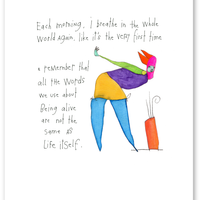 Each morning, I breathe in the whole
world again, like it's the very first time
& remember that
all the words
we use about
Being alive
are not the
same as
Life itself.